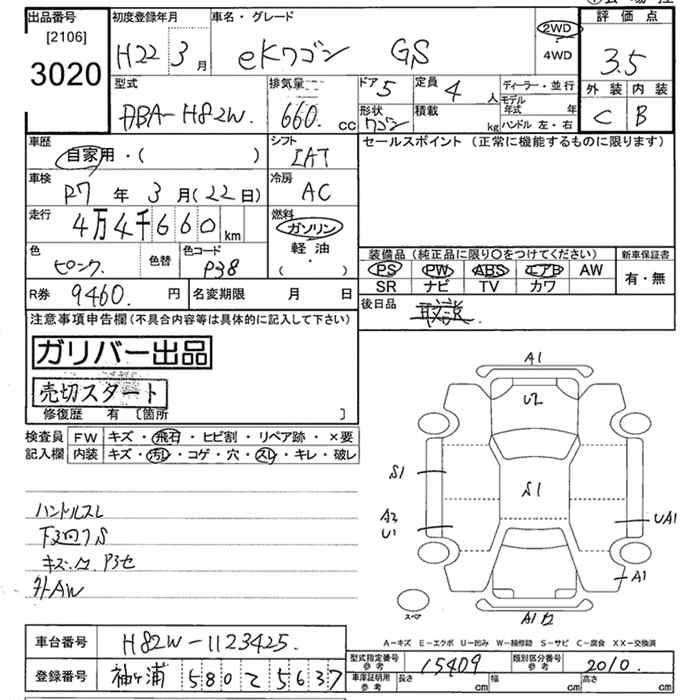 出品番号
[2106]
3020
初度登録年月
H22 3月
車名・グレード
eKワゴン GS
2WD
4WD
評価点
3.5
外装 内装
C B
型式
DBA-H82W.
排気量
660. cc
ドア 5
定員 4 人
形状 ワゴン
積載 kg
ディーラー・並行
モデル年式 年
ハンドル 左・右
車歴
自家用・( )
シフト
IAT
セールスポイント (正常に機能するものに限ります)
車検
R7 年 3 月 (22日)
冷房
AC
走行
4万4千660 km
燃料
ガソリン
軽油
( ・ )
色
ピンク.
色替
色コード
P38
装備品 (純正品に限り○をつけてください)
PS PW ABS エアB AW
SR ナビ TV カワ
新車保証書
有・無
R券 9460. 円
名変期限 月 日
後日品
取説.
注意事項申告欄 (不具合内容等は具体的に記入して下さい)
ガリバー出品
売切スタート
修復歴 有 〔箇所 〕
検査員記入欄
FW キズ・飛石・ヒビ割・リペア跡・×要
内装 キズ・汚レ・コゲ・穴・スレ・キレ・破レ
ハンドルスレ
下廻りS
外AW
A1
U2
S1
S1
A3
U1
UA1
A1
スペア
A-キズ E-エクボ U-凹み W-補修跡 S-サビ C-腐食 XX-交換済
車台番号 H82W-1123425.
登録番号 袖ヶ浦 580 て 5637
型式指定番号 参考 15409
類別区分番号 参考 2010.
車庫証明用 参考 長さ cm 幅 cm 高さ cm